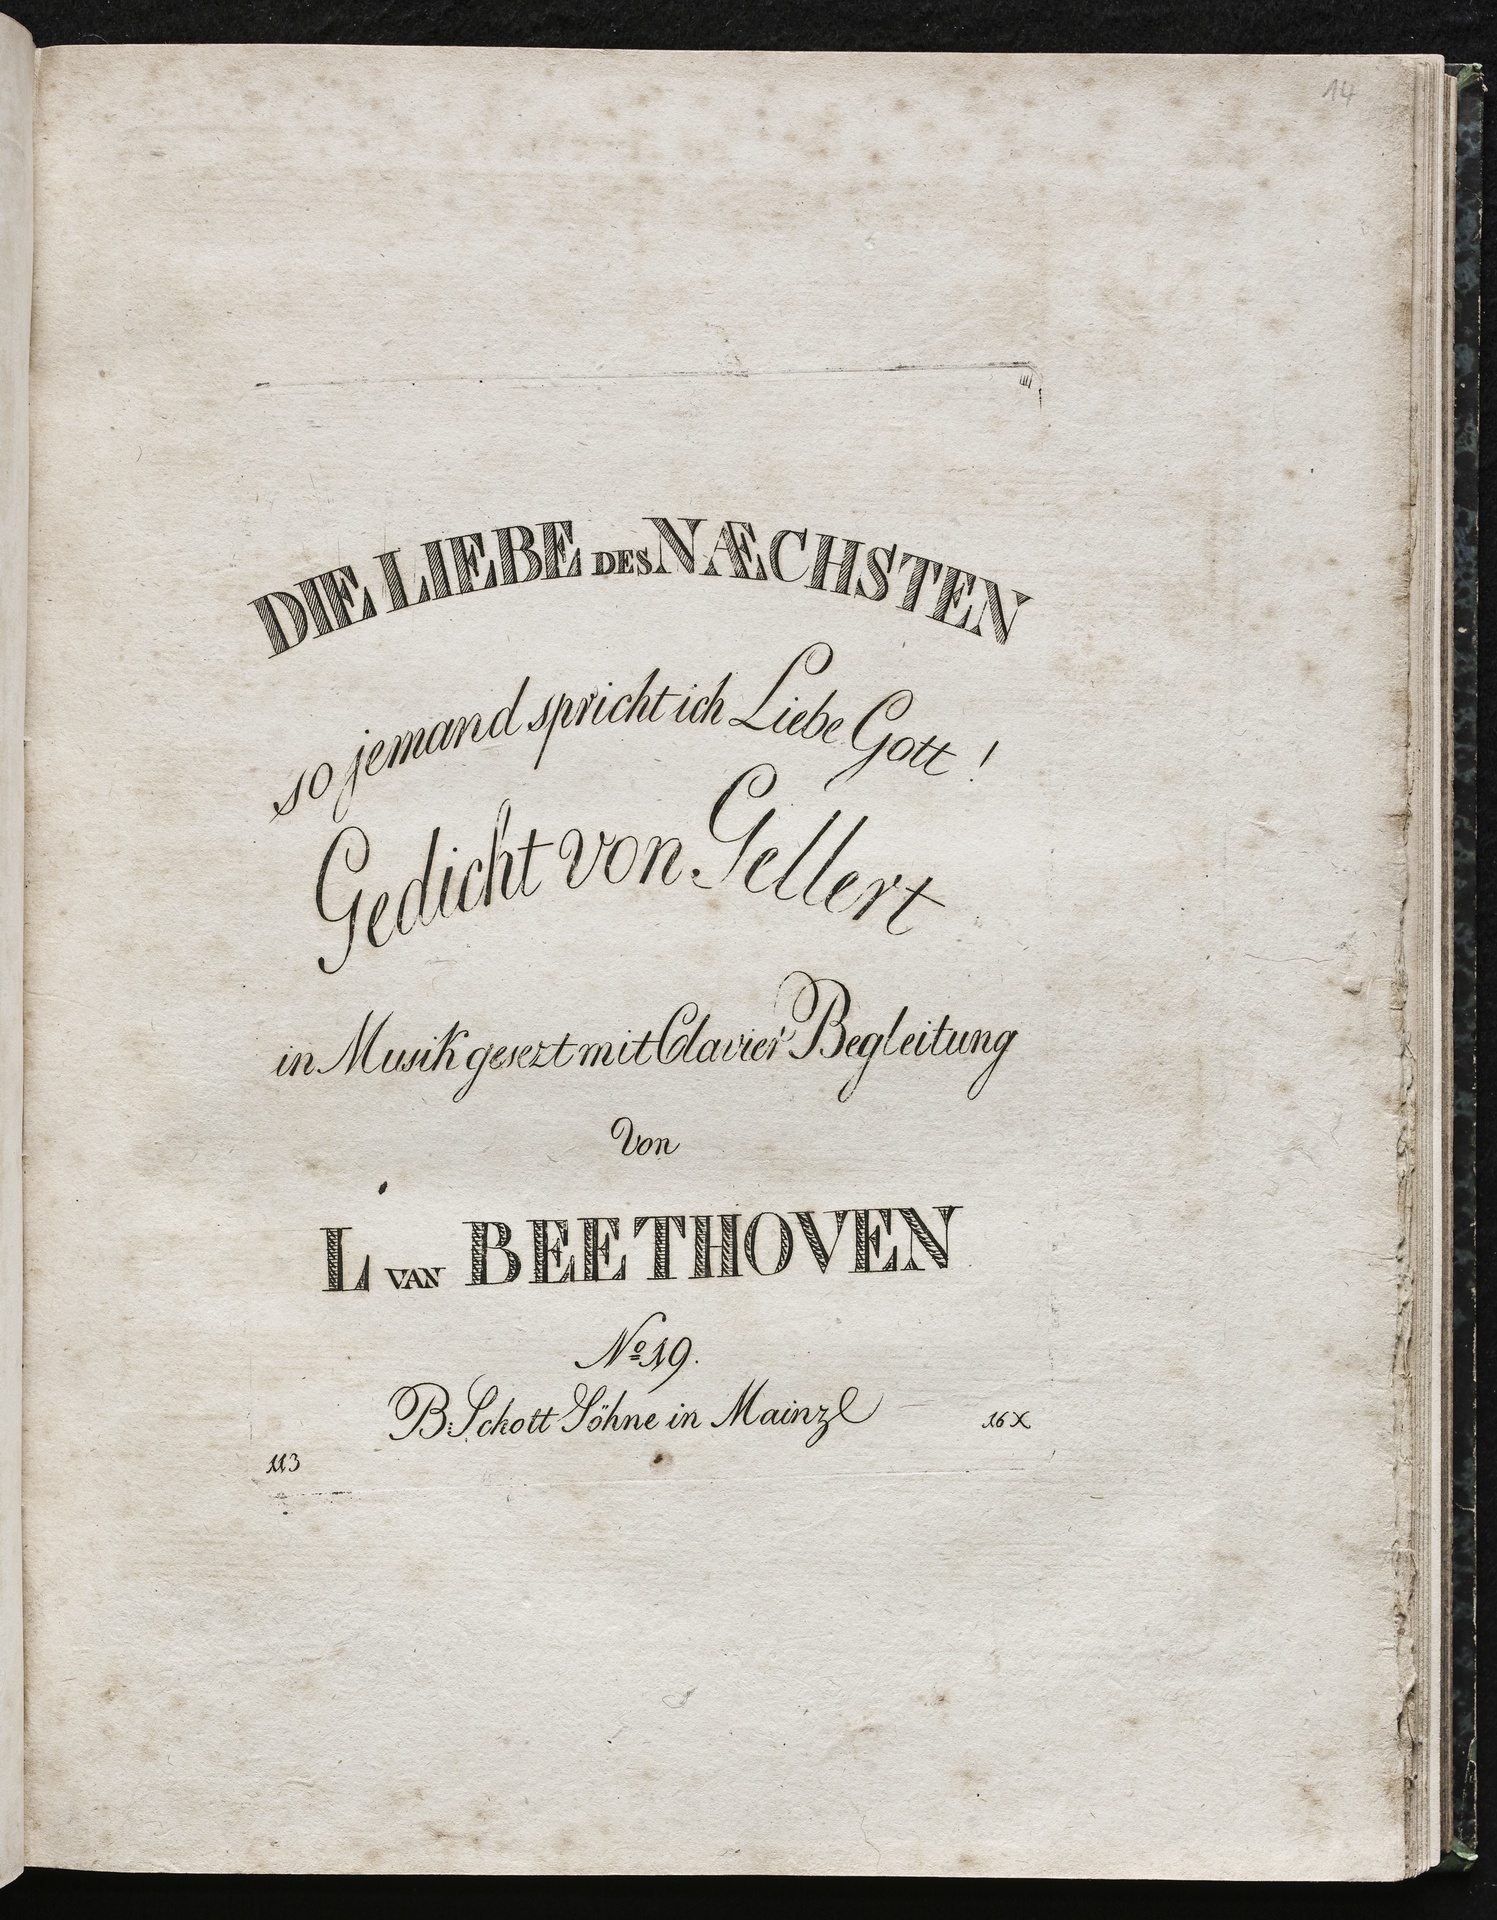 14
DIE LIEBE DES NÆCHSTEN
so jemand spricht ich Liebe Gott!
Gedicht von Gellert
in Musik gesezt mit Clavier Begleitung
Von
L VAN BEETHOVEN
Nº 19.
B: Schott Söhne in Mainz
16 X
113